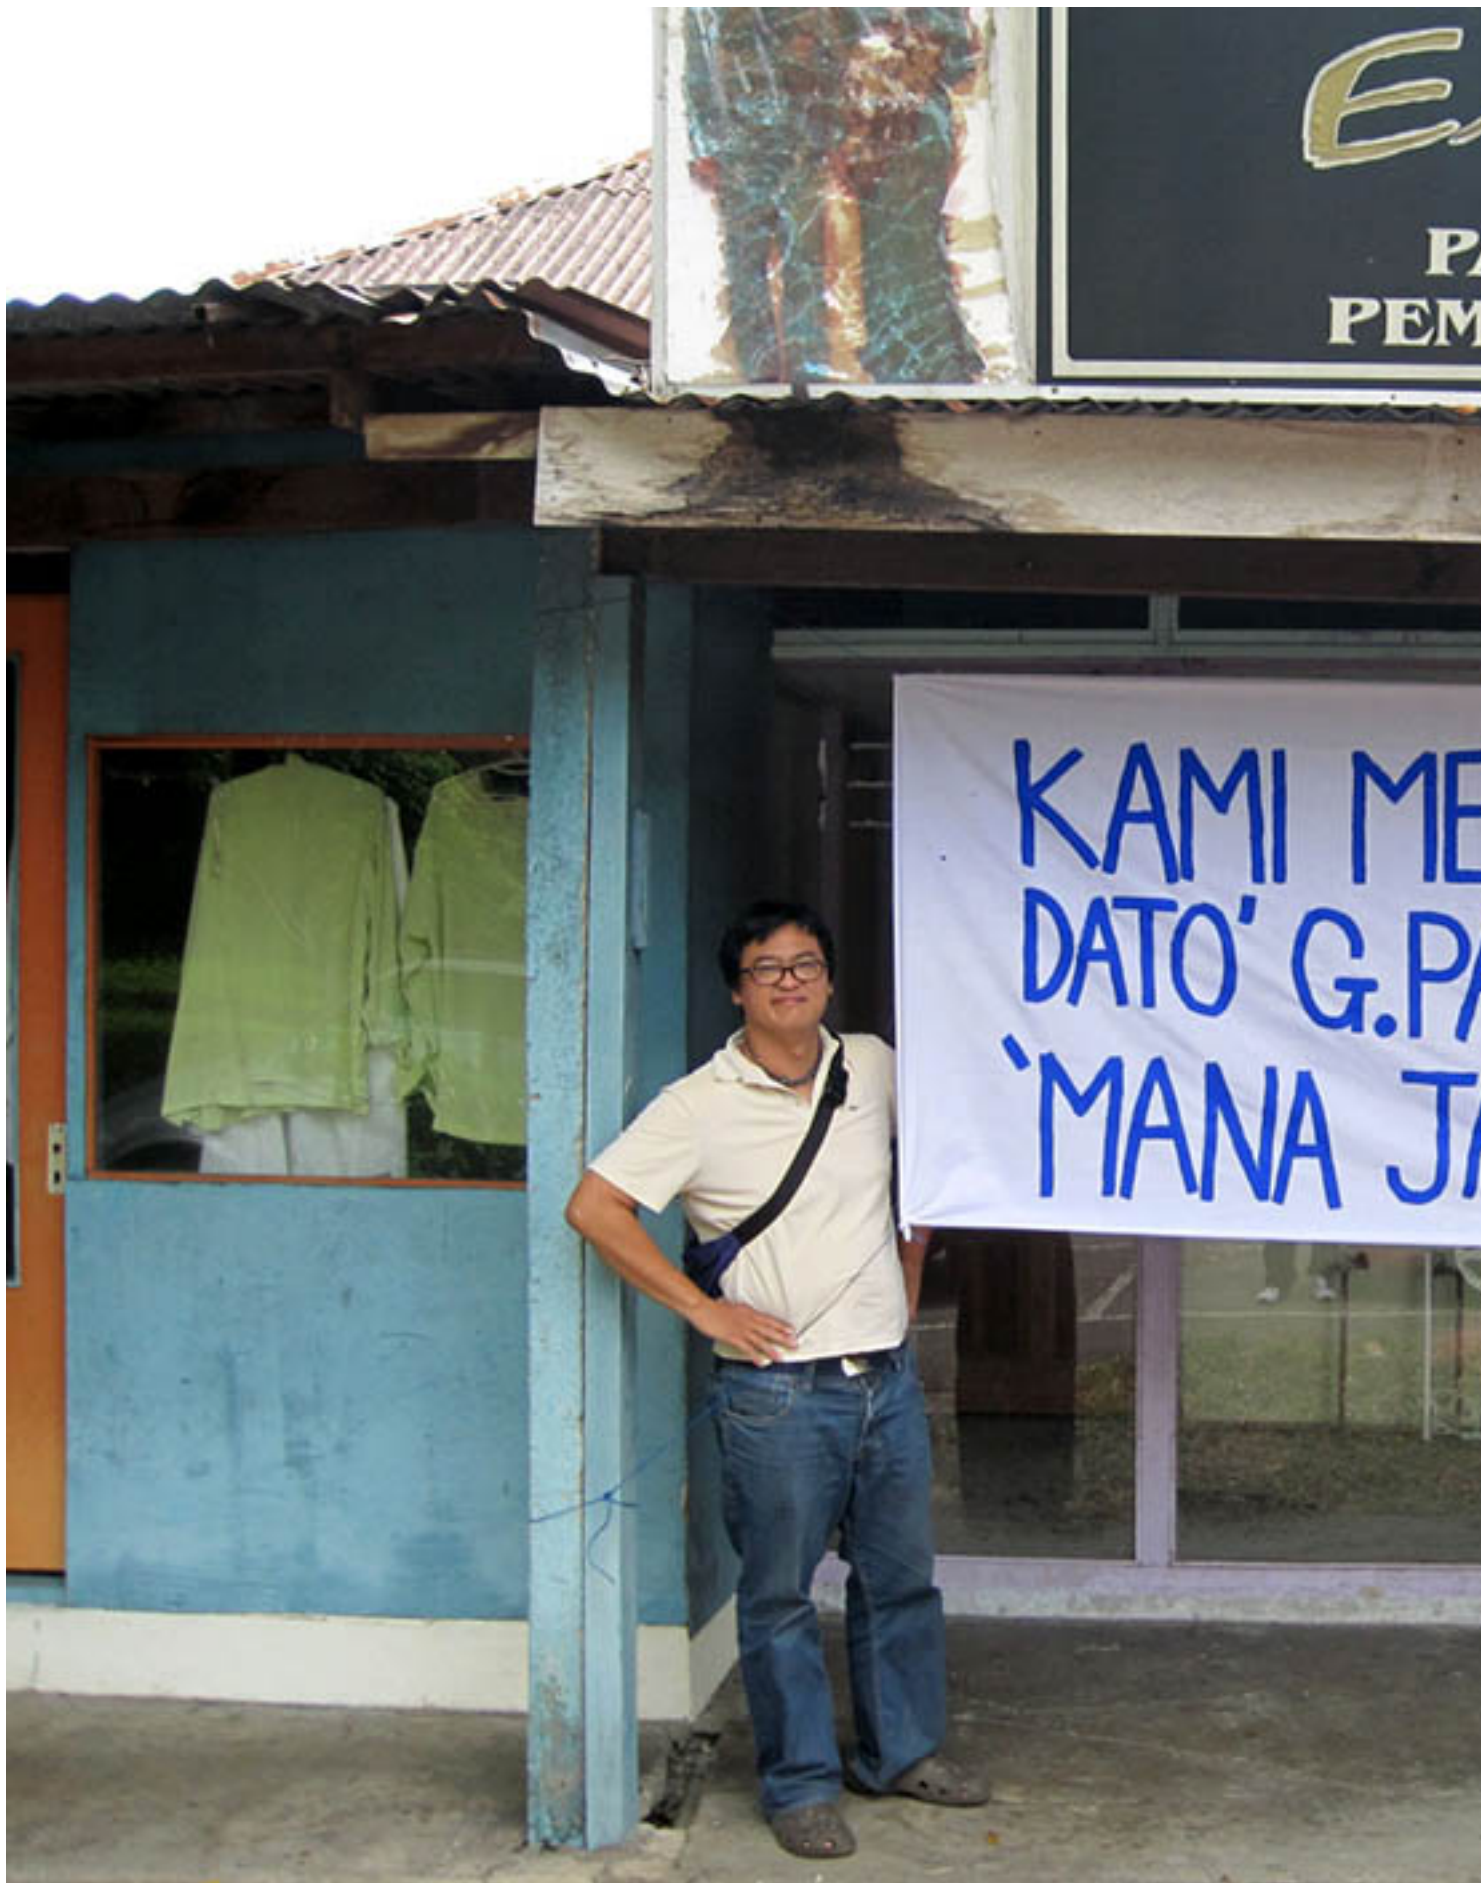 E
PA
PEM
KAMI ME
DATO' G.PA
'MANA JA